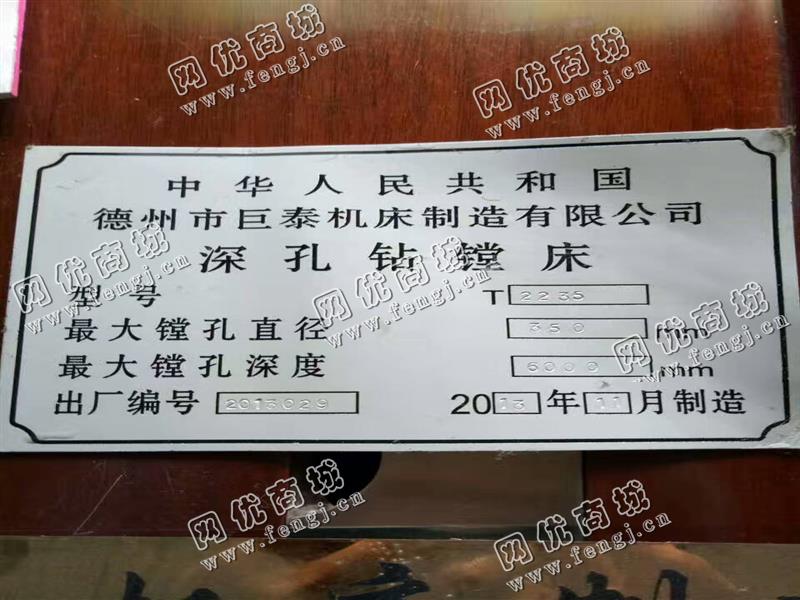 中华人民共和国
德州市巨泰机床制造有限公司
深孔钻镗床
型号 T 2235
最大镗孔直径 350 mm
最大镗孔深度 6000 mm
出厂编号 2013029 2013年11月制造
网优商城
www.fengj.cn
网优商城
www.fengj.cn
网优商城
www.fengj.cn
网优商城
www.fengj.cn
网优商城
www.fengj.cn
网优商城
www.fengj.cn
网优商城
www.fengj.cn